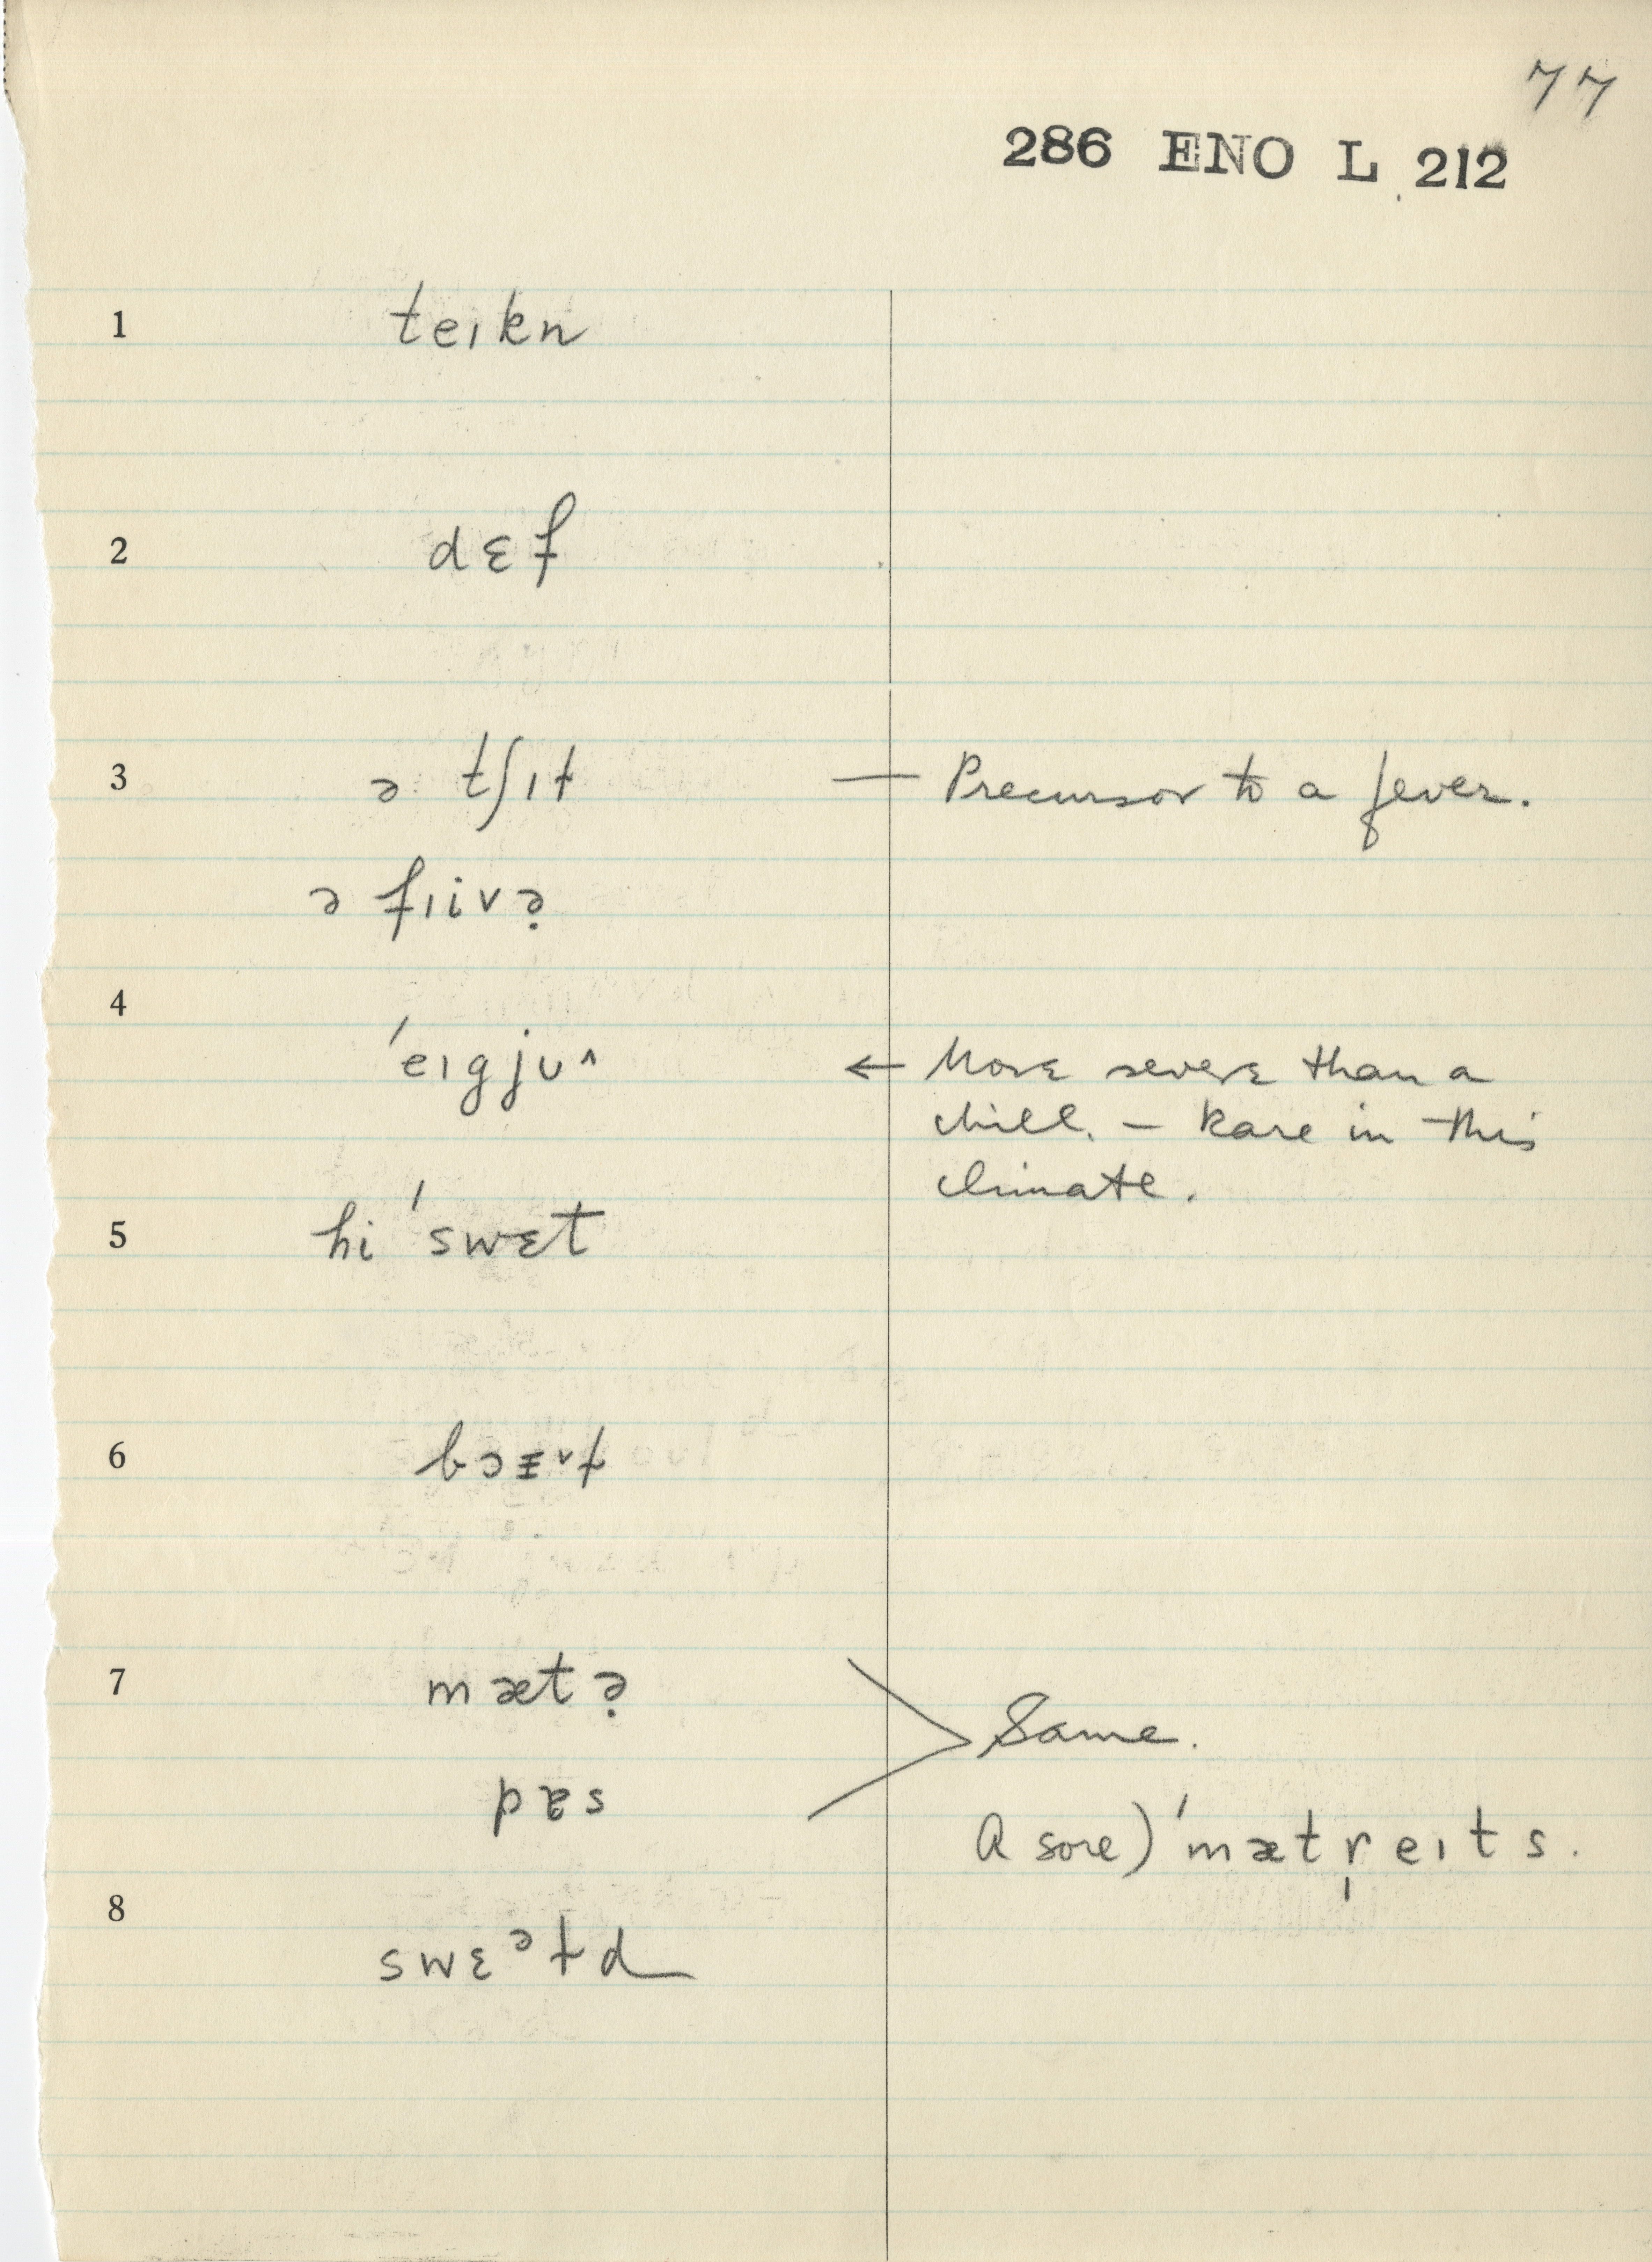 77
286 ENO L 212
1 teɪkn
2 dɛf
3 ə tʃɪɫ — Precursor to a fever.
ə fɪivə̣
4
ˈeɪgju^ ← More severe than a
chill. – Rare in this
climate.
5 hi ˈswɛt
6
7 mætə̣
pɐs
Same.
A sore) ˈmætr̩eɪts.
8
swɛᵊɫd